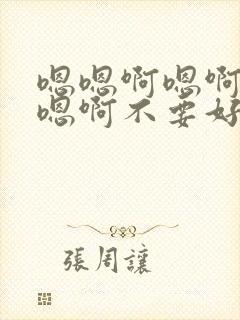 嗯嗯啊嗯啊
嗯啊不要好
張周讓